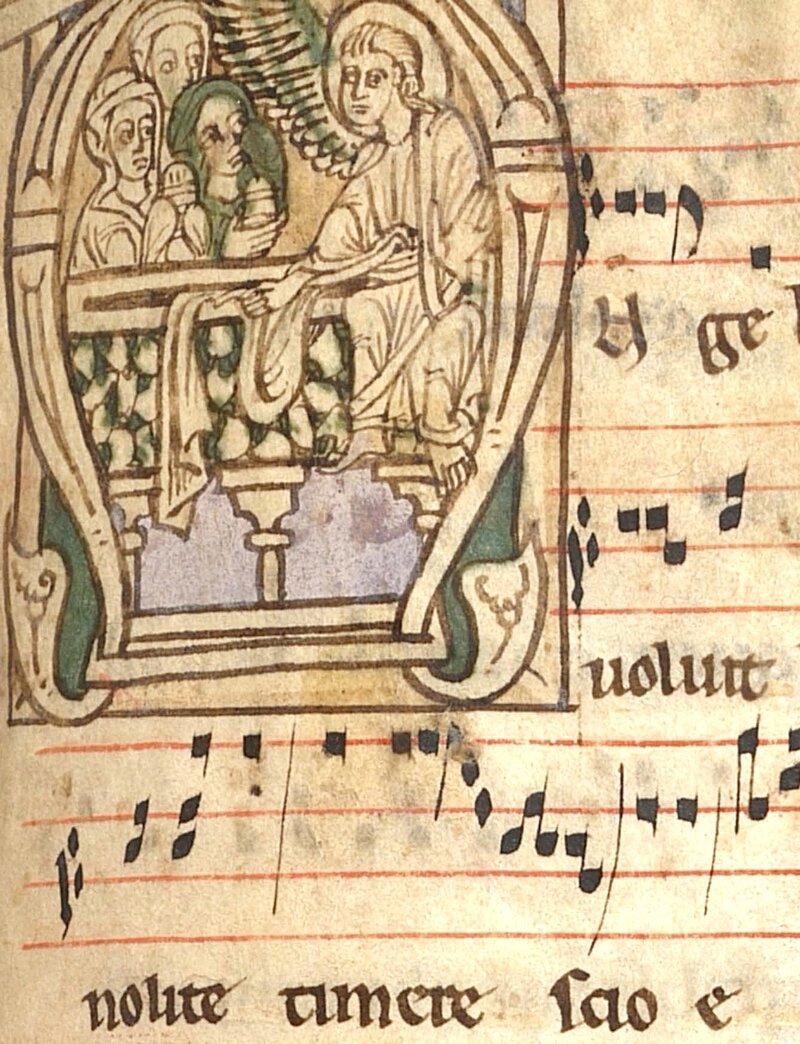 N ge
uoluit
nolite timere scio e